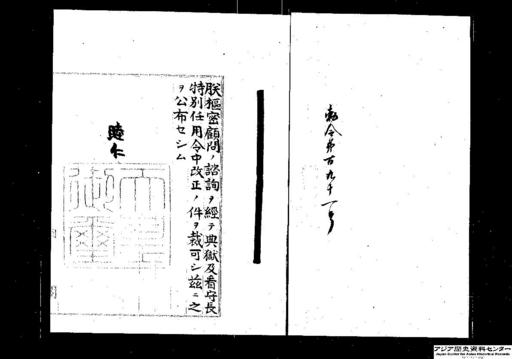 勅令第百九十一号
朕樞密顧問ノ諮詢ヲ經テ典獄及看守長
特別任用令中改正ノ件ヲ裁可シ茲ニ之
ヲ公布セシム
睦仁
天皇
御璽
アジア歴史資料センター
Japan Center for Asian Historical Records